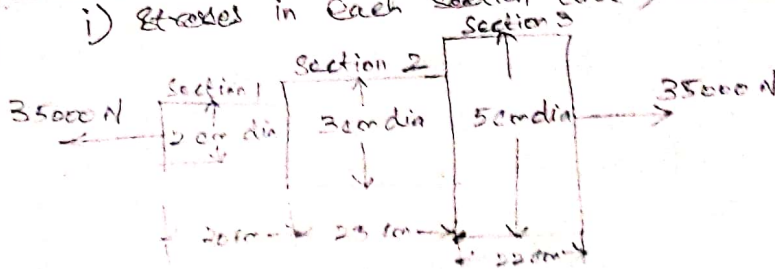 i) Stresses in each section
Section 3
Section 2
Section 1
35000 N
2 cm dia
3cm dia
5cm dia
35000 N
20cm
22cm